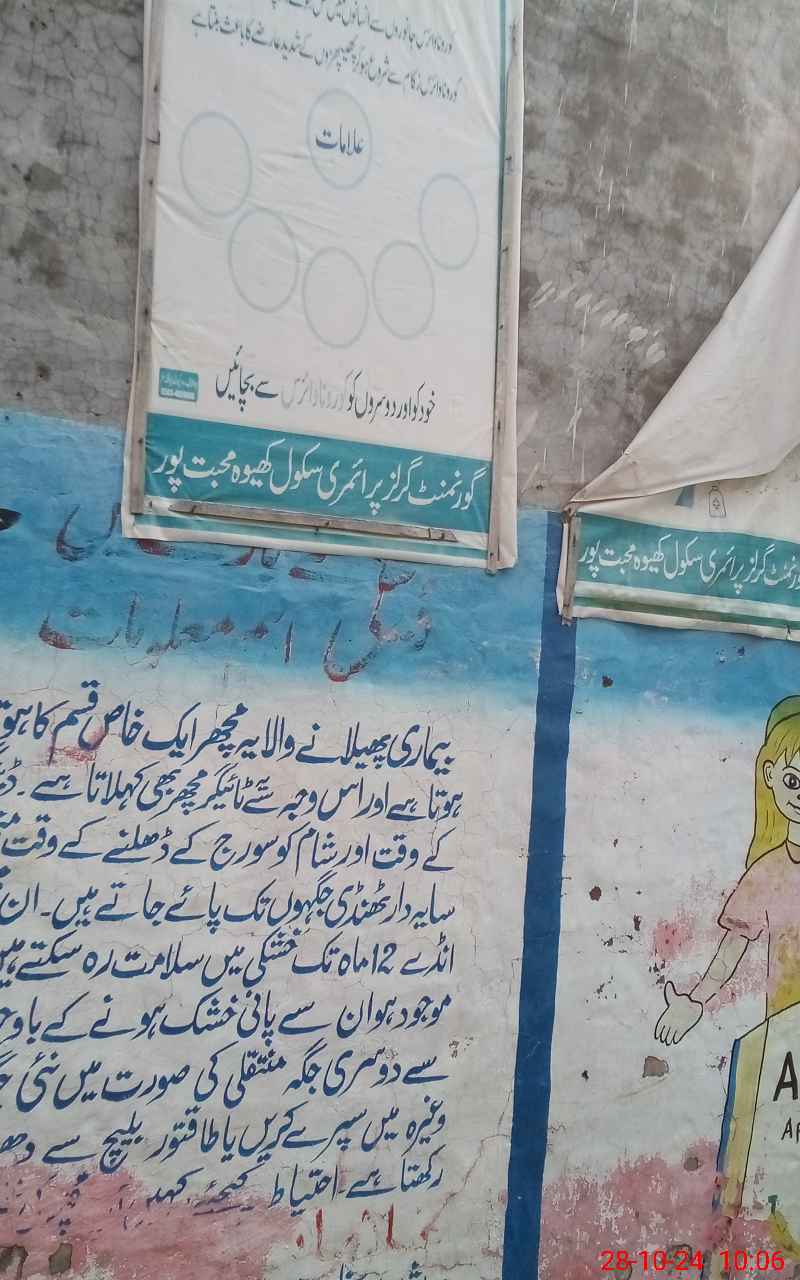 کورونا وائرس جانوروں سے انسانوں
کورونا وائرس زکام سے شروع ہو کر پھیپھڑوں کے شدید عارضے کا باعث بنتا ہے
علامات
خود کو اور دوسروں کو کورونا وائرس سے بچائیں
گورنمنٹ گرلز پرائمری سکول کھیوہ محبت پور
گورنمنٹ گرلز پرائمری سکول کھیوہ محبت پور
ڈینگی اہم معلومات
بیماری پھیلانے والا یہ مچھر ایک خاص قسم کا ہو
ہوتا ہے اور اس وجہ سے ٹائیگر مچھر بھی کہلاتا ہے۔
کے وقت اور شام کو سورج کے ڈھلنے کے وقت
سایہ دار ٹھنڈی جگہوں تک پائے جاتے ہیں۔ ان
انڈے 12 ماہ تک خشکی میں سلامت رہ سکتے ہیں
موجود ہو ان سے پانی خشک ہونے کے باوجو
سے دوسری جگہ منتقلی کی صورت میں نئی
وغیرہ میں سپرے کریں یا طاقتور بلیچ سے دھو
رکھتا ہے۔ احتیاط کیجئے کہیں
A
AP
28-10-24 10:06